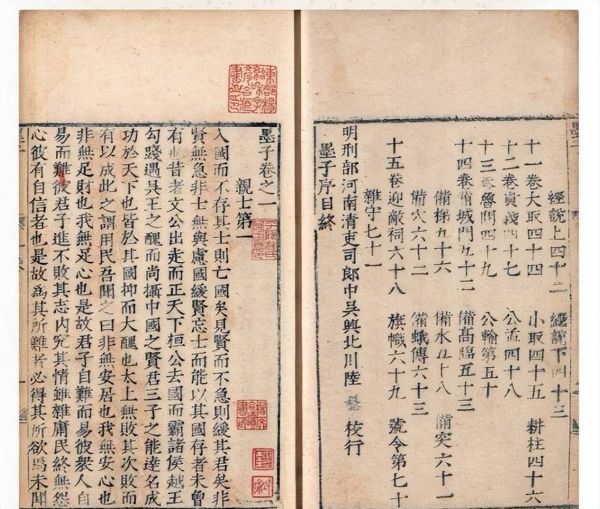 經說上四十二 經說下四十三
十一卷大取四十四 小取四十五 耕柱四十六
十二卷貴義四十七 公孟四十八
十三卷魯問四十九 公輸第五十
十四卷備城門五十二 備高臨五十三
備梯五十六 備水五十八 備突六十一
備穴六十二 備蛾傅六十三
十五卷迎敵祠六十八 旗幟六十九 號令第七十
雜守七十一
明刑部河南清吏司郎中吳興北川陸 校行
墨子序目終
墨子卷之一
親士第一
入國而不存其士則亡國矣見賢而不急則緩其君矣非
賢無急非士無與慮國緩賢忘士而能以其國存者未曾
有也昔者文公出走而正天下桓公去國而霸諸侯越王
勾踐遇吳王之醜而尚攝中國之賢君三子之能達名成
功於天下也皆於其國抑而大醜也太上無敗其次敗而
有以成此之謂用民吾聞之曰非無安居也我無安心也
非無足財也我無足心也是故君子自難而易彼衆人自
易而難彼君子進不敗其志内究其情雖雜庸民終無怨
心彼有自信者也是故爲其所難者必得其所欲焉未聞